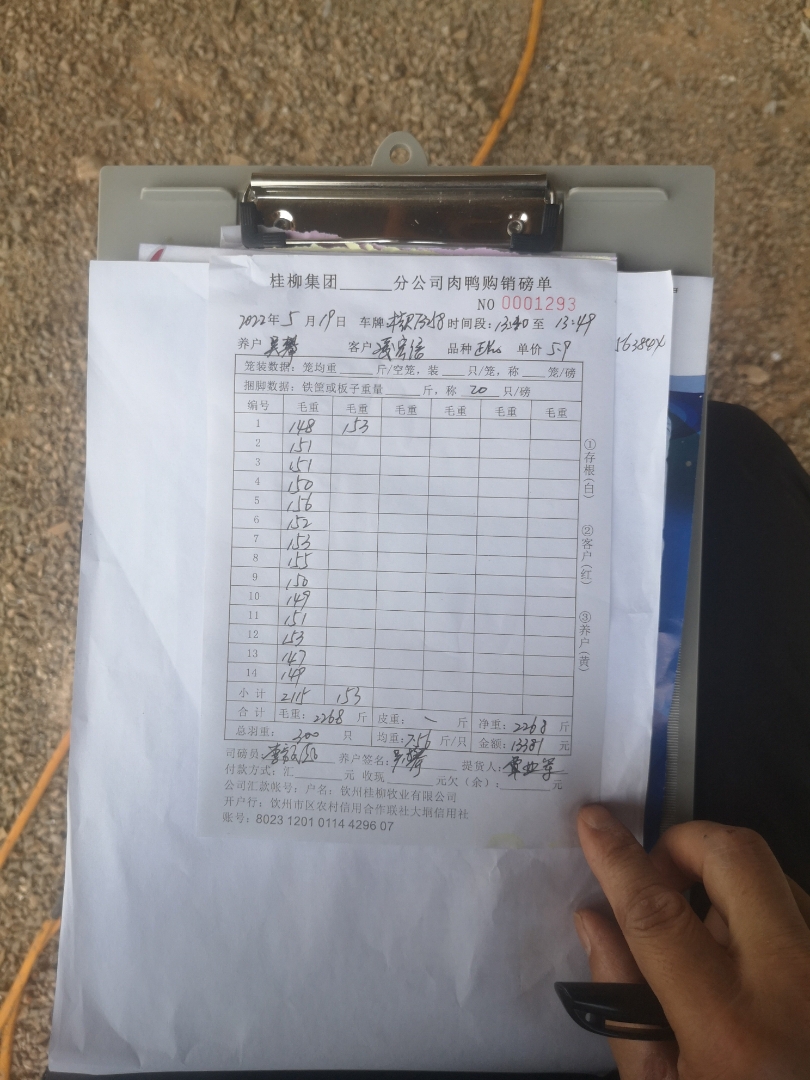 桂柳集团______分公司肉鸭购销磅单
NO 0001293
2022年5月19日 车牌 时间段:13:40至13:49
养户 客户 品种 单价 5.9
563884X
笼装数据:笼均重______斤/空笼,装____只/笼,称____笼/磅
捆脚数据:铁筐或板子重量______斤,称 20 只/磅
编号 毛重 毛重 毛重 毛重 毛重 毛重
1 148 153
2 151
3 151
4 150
5 156
6 152
7 153
8 155
9 150
10 149
11 151
12 153
13 147
14 149
小计 2115 153
合计 毛重:2268斤 皮重:斤 净重:2268斤
总羽重:300只 均重:7.56斤/只 金额:13381元
司磅员: 养户签名: 提货人:
付款方式:汇______元 收现______元欠(余):______元
公司汇款帐号:户名:钦州桂柳牧业有限公司
开户行:钦州市区农村信用合作联社大垌信用社
账号:8023 1201 0114 4296 07
①存根(白)
②客户(红)
③养户(黄)